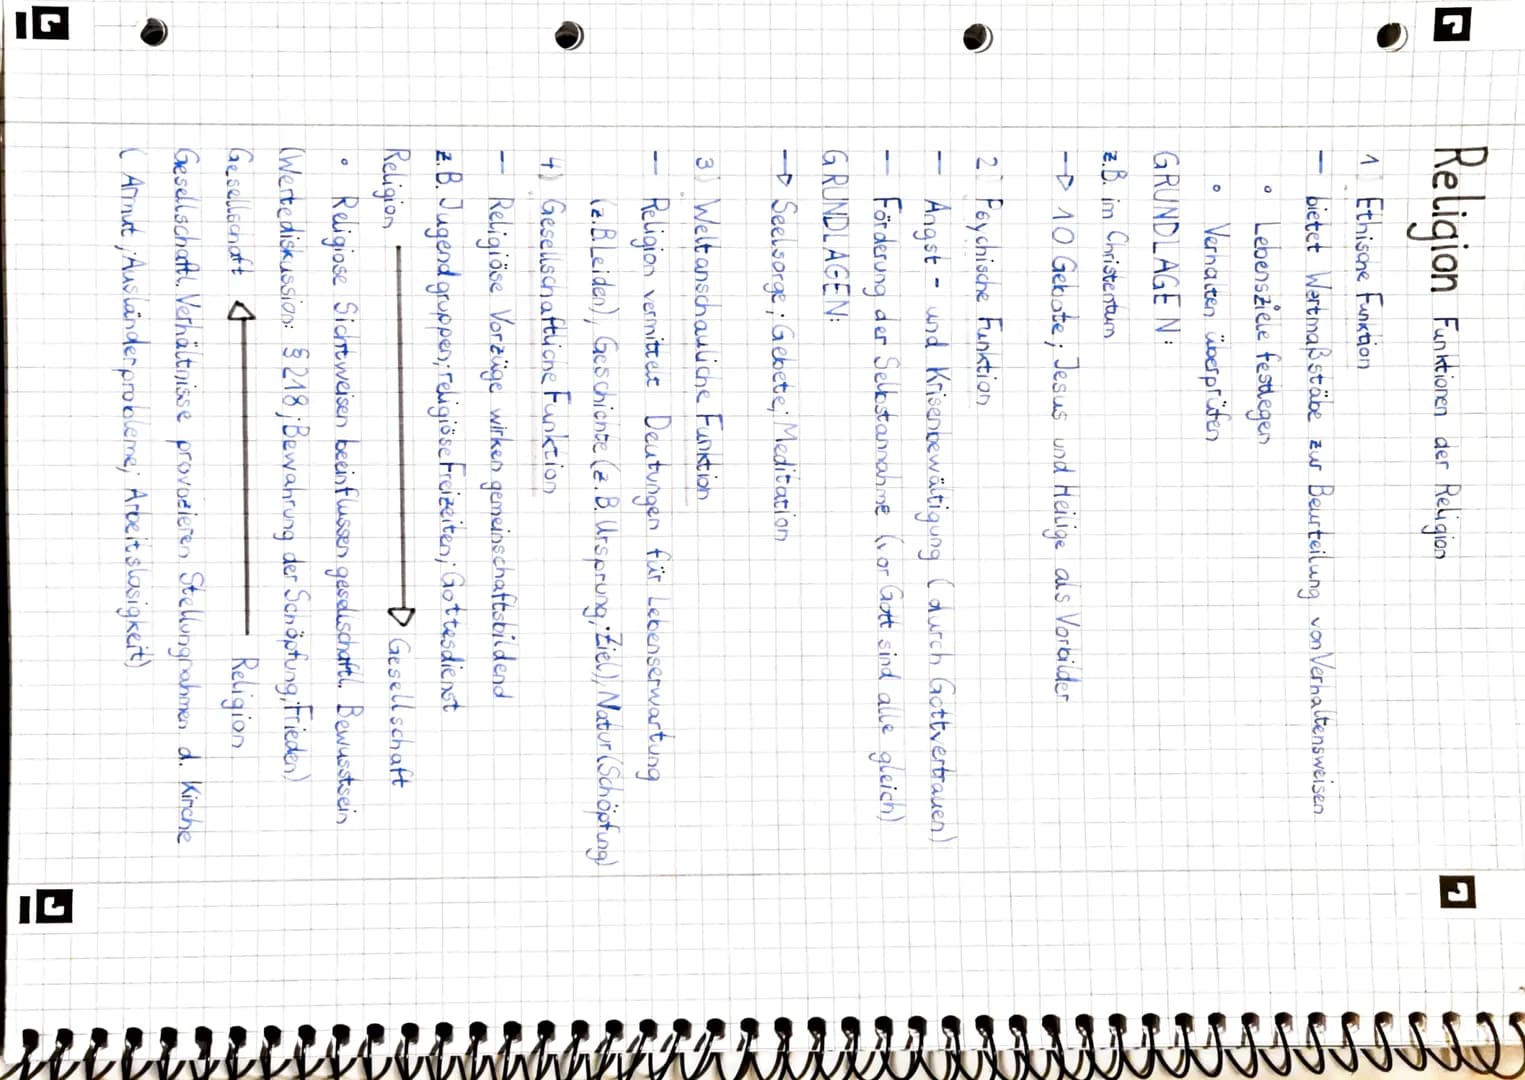 Religion Funktionen der Religion
1) Ethische Funktion
— bietet Wertmaßstäbe zur Beurteilung von Verhaltensweisen
• Lebensziele festlegen
• Verhalten überprüfen
GRUNDLAGEN:
z.B. im Christentum
→ 10 Gebote; Jesus und Heilige als Vorbilder
2) Psychische Funktion
— Angst- und Krisenbewältigung (durch Gottvertrauen)
— Förderung der Selbstannahme (vor Gott sind alle gleich)
GRUNDLAGEN:
→ Seelsorge; Gebete; Meditation
3) Weltanschauliche Funktion
— Religion vermittelt Deutungen für Lebenserwartung
(z.B Leiden), Geschichte (z.B. Ursprung; Ziel), Natur (Schöpfung)
4) Gesellschaftliche Funktion
— Religiöse Vorzüge wirken gemeinschaftsbildend
z.B. Jugendgruppen; religiöse Freizeiten; Gottesdienst
Religion → Gesellschaft
• Religiöse Sichtweisen beeinflussen gesellschaftl. Bewusstsein
(Wertediskussion: § 218; Bewahrung der Schöpfung; Frieden)
Gesellschaft ← Religion
Gesellschaftl. Verhältnisse provozieren Stellungnahmen d. Kirche
(Armut; Ausländerprobleme; Arbeitslosigkeit)